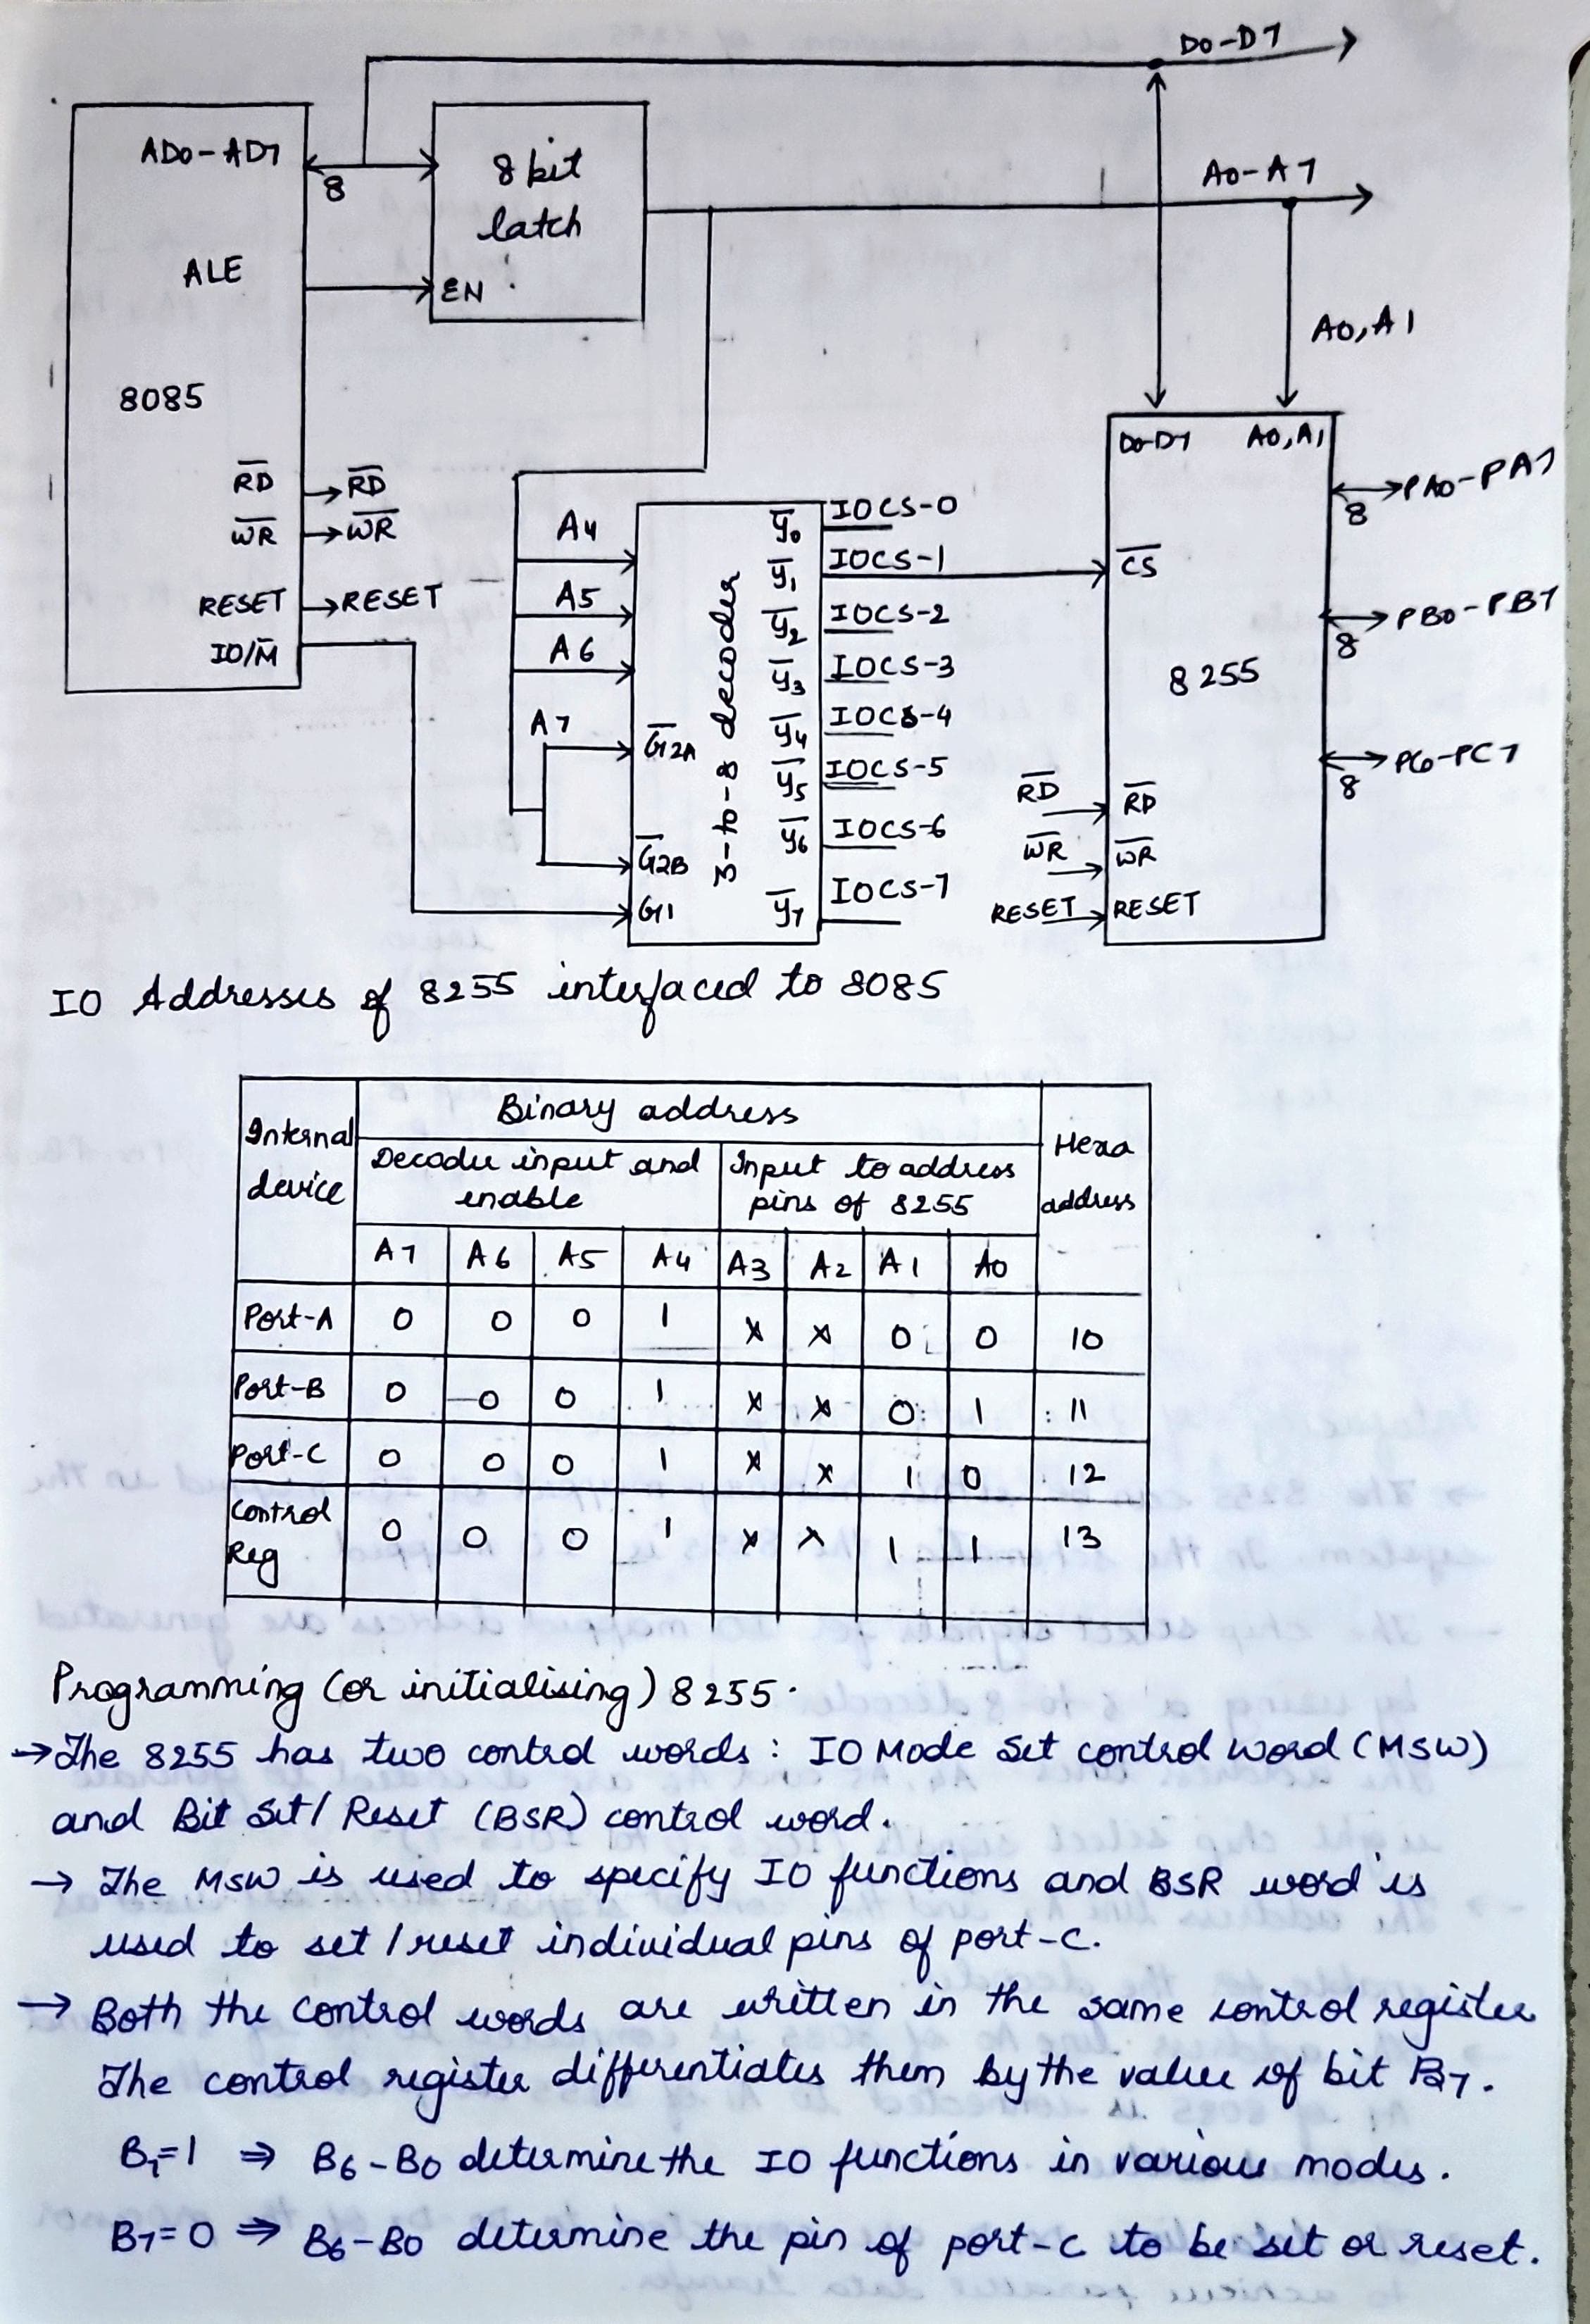 D0-D7
AD0-AD7
8
8 bit
latch
A0-A7
ALE
EN
A0, A1
8085
D0-D7 A0, A1
R̅D̅
R̅D̅
PA0-PA7
8
W̅R̅
W̅R̅
A4
Y̅0
IOCS-0
Y̅1
IOCS-1
C̅S̅
RESET
RESET
A5
Y̅2
IOCS-2
PB0-PB7
8
IO/M̅
A6
Y̅3
IOCS-3
8255
3-to-8 decoder
A7
G̅2A
Y̅4
IOCS-4
Y̅5
IOCS-5
PC0-PC7
8
R̅D̅
R̅D̅
G̅2B
Y̅6
IOCS-6
W̅R̅
W̅R̅
G1
Y̅7
IOCS-7
RESET
RESET
IO Addresses of 8255 interfaced to 8085
Internal device
Binary address
Hexa address
Decoder input and enable
Input to address pins of 8255
A7 A6 A5 A4 A3 A2 A1 A0
Port-A 0 0 0 1 x x 0 0 10
Port-B 0 0 0 1 x x 0 1 11
Port-C 0 0 0 1 x x 1 0 12
Control Reg 0 0 0 1 x x 1 1 13
Programming (or initialising) 8255.
→ The 8255 has two control words : IO Mode Set control word (MSW)
and Bit Set/ Reset (BSR) control word.
→ The MSW is used to specify IO functions and BSR word is
used to set / reset individual pins of port-C.
→ Both the control words are written in the same control register
The control register differentiates them by the value of bit B7.
B7=1 ⇒ B6-B0 determine the IO functions in various modes.
B7=0 ⇒ B6-B0 determine the pin of port-C to be set or reset.